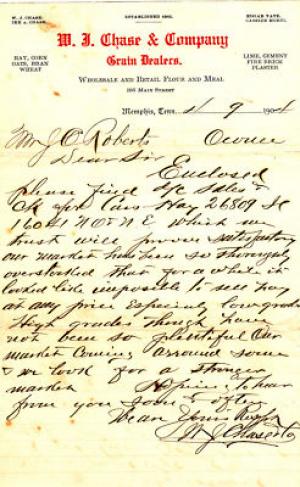 W. J. CHASE.
IKE A. CHASE.
ESTABLISHED 1865.
EDGAR TATE.
W. J. Chase & Company
Grain Dealers.
HAY, CORN
OATS, BRAN
WHEAT
LIME, CEMENT
FIRE BRICK
PLASTER
WHOLESALE AND RETAIL FLOUR AND MEAL
MAIN STREET
Memphis, Tenn. 9 1904
Mr J O Roberts
Dear Sir
Enclosed
please find a/c sales &
Ck for Cars Hay 26809 Ill
16041 N O & N E which we
trust will prove satisfactory
our market has been so thoroughly
overstocked that for a while it
looked like impossible to sell hay
at any price Especialy low grades
High grades though have
not been so plentiful Our
market Coming arround some
& we look for a stronger
market Hoping to hear
from you soon & often
We are Yours Respt
W J Chase & Co